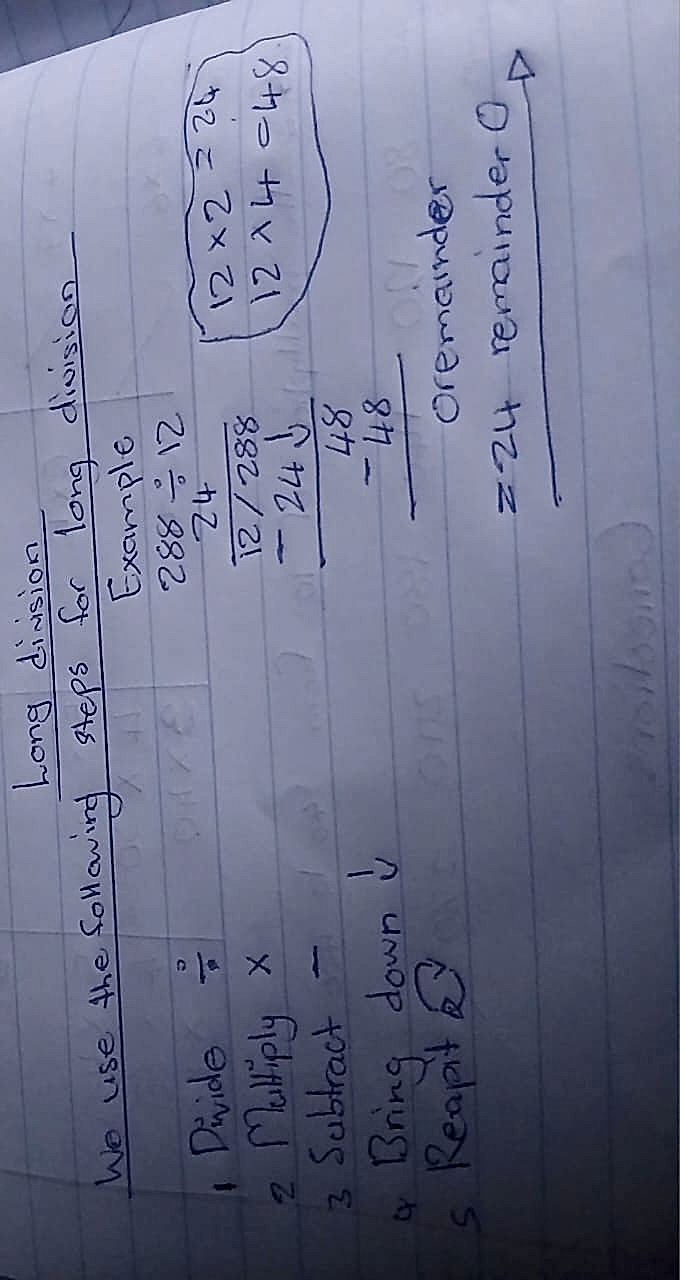 Long division
We use the following steps for long division
Example
288 ÷ 12
24
12/288
- 24↓
48
- 48
0remainder
= 24 remainder 0
12 x 2 = 24
12 x 4 = 48
1 Divide ÷
2 Multiply x
3 Subtract -
4 Bring down ↓
5 Reapit